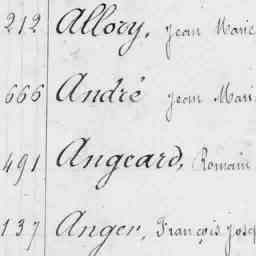 212 Allory, Jean Marie
666 André Jean Mari
491 Angeard, Romain
137 Anger, François Josep